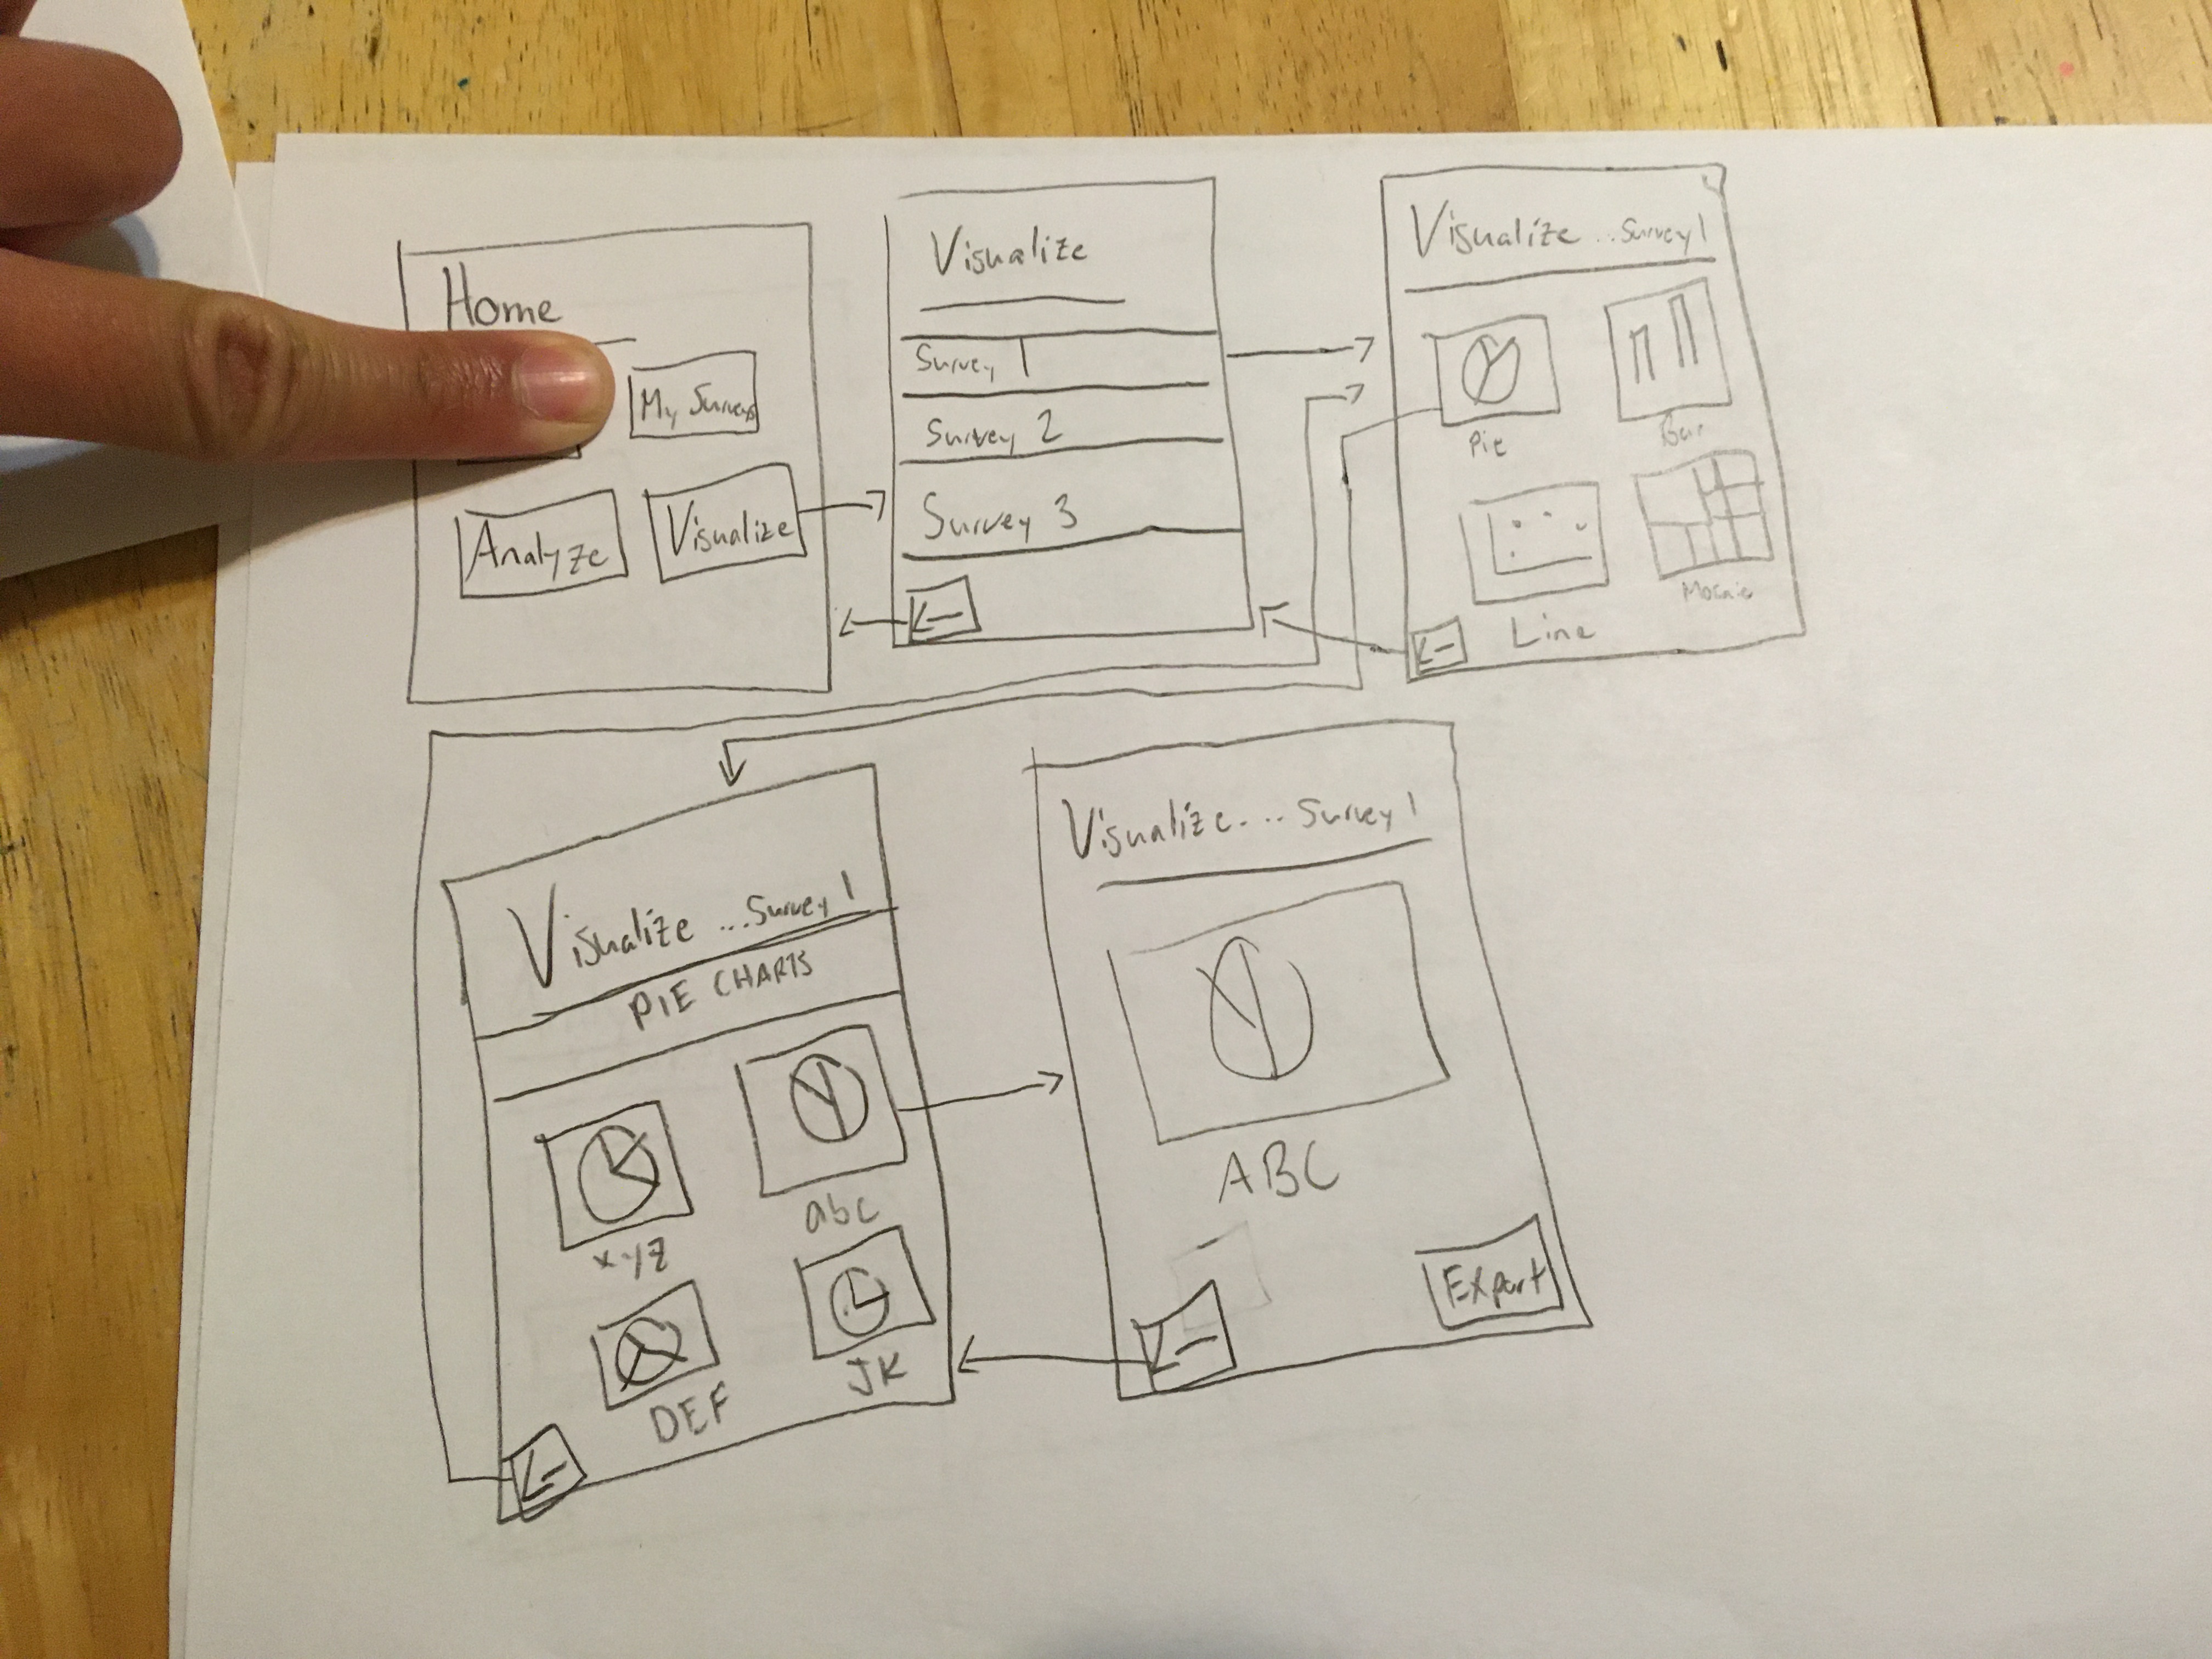 Home
My Surveys
Analyze
Visualize
Visualize
Survey 1
Survey 2
Survey 3
Visualize ... Survey 1
Pie
Bar
Line
Mosaic
Visualize ... Survey 1
PIE CHARTS
xyz
abc
DEF
JK
Visualize.... Survey 1
ABC
Export